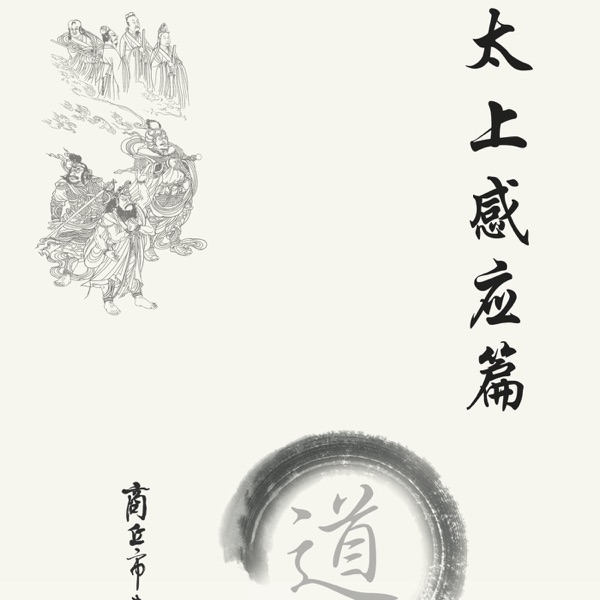 太上感应篇
道
商丘市